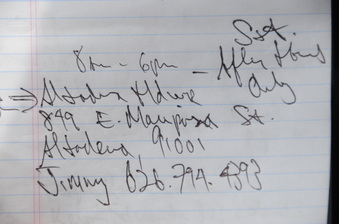 Sat.
8am - 6pm - After Hours
Only
Altadena Hdwe
849 E. Mariposa St.
Altadena, 91001
Jimmy 626.794.4393